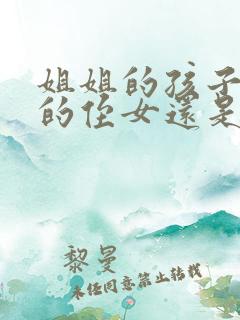 姐姐的孩子
的侄女還是
黎曼
未任同意禁止转载